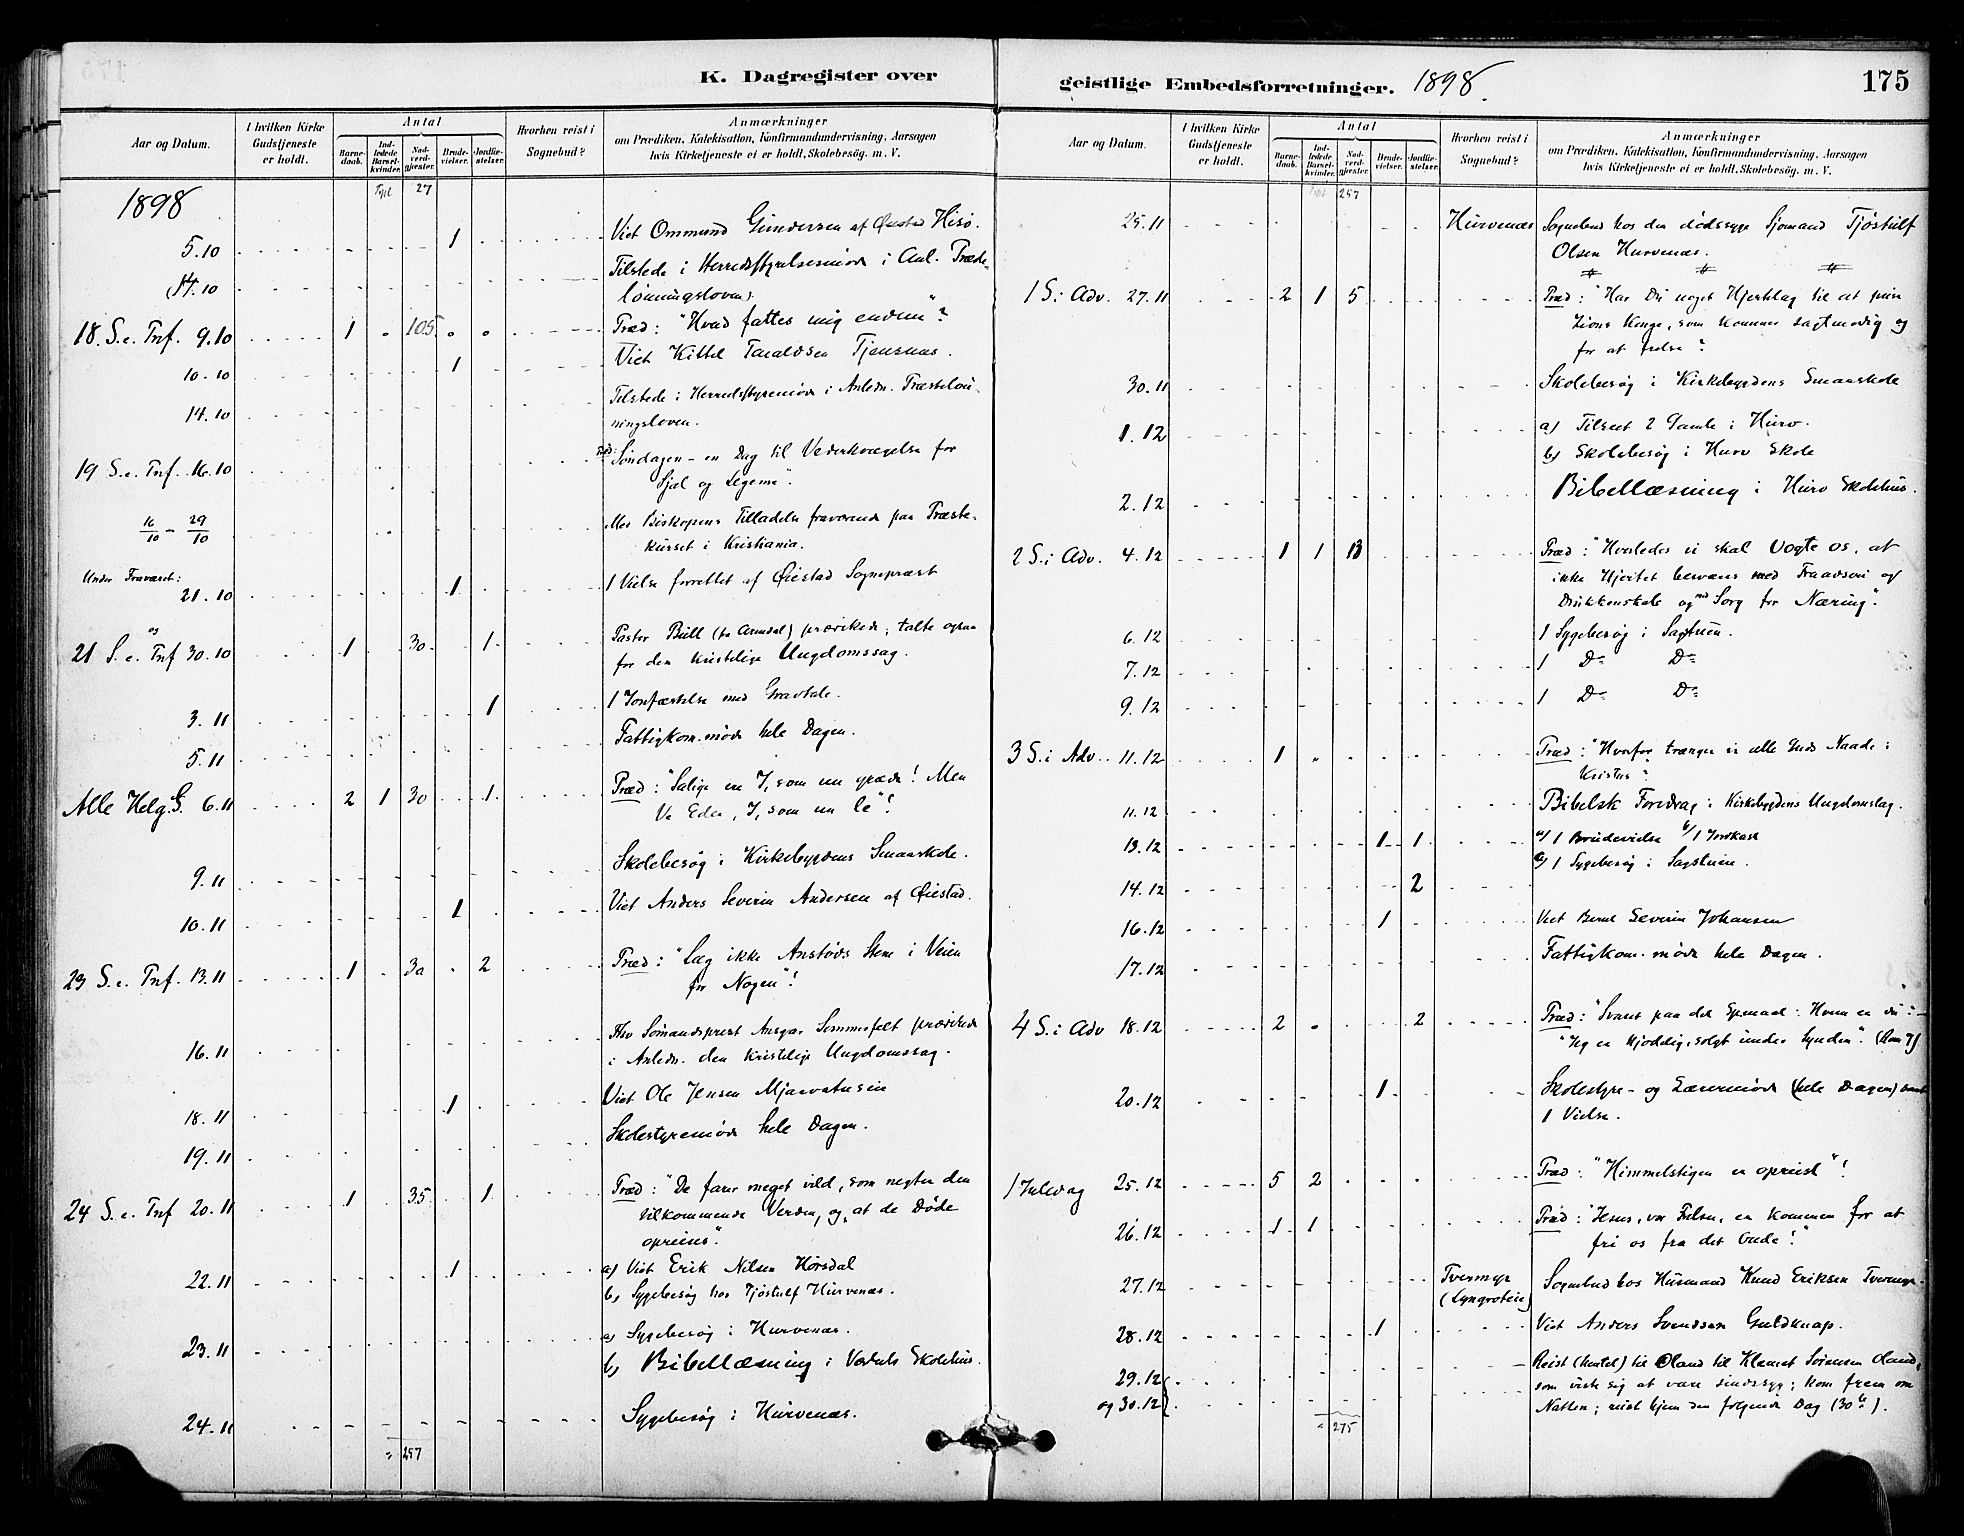 K. Dagregister over
geistlige Embedsforretninger. 1898.
175
Aar og Datum.
I hvilken Kirke Gudstjeneste er holdt.
Antal
Barne-daab.
Ind-ledede Barsel-kvinder.
Nad-verd-gjæster.
Brude-vielser.
Jordfæ-stelser.
Hvorhen reist i Sognebud?
Anmærkninger
om Prædiken, Katekisation, Konfirmandundervisning, Aarsagen
hvis Kirketjeneste ei er holdt, Skolebesøg. m. V.
1898
27
5.10 1 Viet Ommund Gundersen af Øiestad Hisø.
14.10 Tilstede i Herredsstyrelsesmøde i Anl. Præste-
lønningsloven).
18. S. e. Trf. 9.10 1 " 105 " " Præd: "Hvad fattes mig endnu"?
10.10 1 Viet Kittel Taraldsen Tjensnæs.
14.10 Tilstede i Herredsstyremøde i Anledn. Præsteløn-
ningsloven.
19 S. e. Trf. 16.10 Præd: Søndagen - en Dag til Vederkvægelse for
Sjæl og Legeme".
16/10 - 29/10 Med Biskopens Tilladelse fraværende paa Præste-
kurset i Kristiania.
Under Fraværet:
21.10 1 1 Vielse forrettet af Øiestad Sognepræst
og
21 S. e. Trf 30.10 1 30 1 Pastor Bull (fra Arendal) prædikede; talte ogsaa
for den kristelige Ungdomssag.
3.11 1 1 Jordfæstelse med Gravtale.
5.11 Fattigkom.møde hele Dagen.
Alle Helg. S. 6.11 2 1 30 1 Præd: "Salige ere I, som nu græde! Men
Ve Eder, I, som nu le"!
9.11 Skolebesøg i Kirkebygdens Smaaskole.
10.11 1 Viet Anders Severin Andersen af Øiestad.
23 S. e. Trf. 13.11 1 30 2 Præd: "Læg ikke Anstøds Stene i Veien
for Nogen"!
16.11 Hr Sømandsprest Ansgar Sommerfelt prædikede
i Anledn. den kristelige Ungdomssag.
18.11 1 Viet Ole Jensen Mjaavatnsein
19.11 Skolestyremøde hele Dagen.
24 S. e. Trf 20.11 1 35 1 Præd: "De farer meget vild, som negter den
tilkommende Verden, og, at de Døde
opreises".
22.11 1 a) Viet Erik Nilsen Hørsdal
b) Sygebesøg hos Tjøstulf Hurvenæs.
23.11 a) Sygebesøg i Hurvenæs.
b) Bibellæsning i Skolehus.
24.11 Sygebesøg i Hurvenæs.
" 257
Aar og Datum.
I hvilken Kirke Gudstjeneste er holdt.
Antal
Barne-daab.
Ind-ledede Barsel-kvinder.
Nad-verd-gjæster.
Brude-vielser.
Jordfæ-stelser.
Hvorhen reist i Sognebud?
Anmærkninger
om Prædiken, Katekisation, Konfirmandundervisning, Aarsagen
hvis Kirketjeneste ei er holdt, Skolebesøg. m. V.
257
25.11 Hurvenæs Sognebud hos den dødssyge Sjømand Tjøstulf
Olsen Hurvenæs.
1 S. i Adv. 27.11 2 1 5 Præd: "Har Du noget Hjertelag til at
Zions Konge, som kommer sagtmodig og
for at frelse"?
30.11 Skolebesøg i Kirkebygdens Smaaskole
1.12 a) Tilseet 2 Gamle i Hurv.
b) Skolebesøg i Hurv Skole
2.12 Bibellæsning i Hurv Skolehus.
2 S. i Adv. 4.12 1 1 13 Præd: "Hvorledes vi skal vogte os, at
ikke Hjertet besværes med Fraadseri og
Drukkenskab og med Sorg for Næring".
6.12 1 Sygebesøg i Sagstuen.
7.12 1 Do Do
9.12 1 Do Do
3 S. i Adv. 11.12 1 " Præd: "Hvorfor trænger vi alle Guds Naade i
Kristus"?
11.12 Bibelsk Foredrag i Kirkebygdens Ungdomslag.
13.12 1 1 a/ 1 Brudevielse b/ 1 Jordkast
c/ 1 Sygebesøg i Sagstuen.
14.12 2
16.12 1 Viet Bernt Severin Johansen
17.12 Fattigkom. møde hele Dagen.
4 S. i Adv 18.12 2 " 2 Præd: "Svaret paa det Spmaal: Hvem er du": -
"Jeg er kjødelig, solgt under Synden". (Rom 7)
20.12 1 Skolestyre- og Lærermøde (hele Dagen) samt
1 Vielse.
1 Juledag 25.12 5 2 Præd: "Himmelstigen er opreist"!
26.12 1 1 Præd: "Jesus, vor Frelser, er kommen for at
fri os fra det Onde"!
27.12 Tveitmyr
(Lyngroteie) Sognebud hos Husmand Knud Eriksen Tveitmyr.
28.12 1 Viet Anders Svendsen Guldknap.
29.12 Reist (hentet) til Oland til Klemet Sørensen Oland,
og 30.12 som viste sig at være sindssyg; kom frem om
Natten; reist hjem den følgende Dag (30te).
" 275